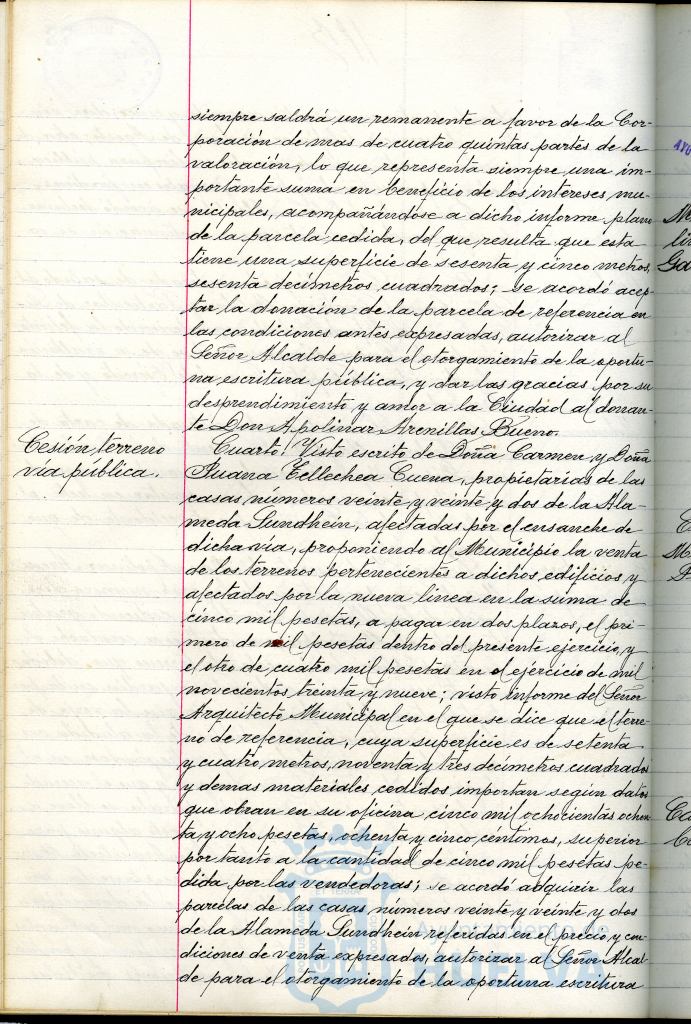 siempre saldrá un remanente a favor de la Cor-
poración de mas de cuatro quintas partes de la
valoración, lo que representa siempre una im-
portante suma en beneficio de los intereses mu-
nicipales, acompañándose a dicho informe plano
de la parcela cedida, del que resulta que esta
tiene una superficie de sesenta y cinco metros,
sesenta decímetros cuadrados; se acordó acep-
tar la donación de la parcela de referencia en
las condiciones antes expresadas, autorizar al
Señor Alcalde para el otorgamiento de la oportu-
na escritura pública, y dar las gracias por su
desprendimiento y amor a la Ciudad al donan-
te Don Apolinar Arenillas Bueno.
Cesión terreno
vía pública.
Cuarto: Visto escrito de Doña Carmen y Doña
Juana Tellechea Cuena, propietarias de las
casas números veinte y veinte y dos de la Ala-
meda Sundhein, afectadas por el ensanche de
dicha vía, proponiendo al Municipio la venta
de los terrenos pertenecientes a dichos edificios y
afectados por la nueva línea en la suma de
cinco mil pesetas, a pagar en dos plazos, el pri-
mero de mil pesetas dentro del presente ejercicio, y
el otro de cuatro mil pesetas en el ejercicio de mil
novecientos treinta y nueve; visto informe del Señor
Arquitecto Municipal en el que se dice que el terre-
no de referencia, cuya superficie es de setenta
y cuatro metros, noventa y tres decímetros cuadrados
y demas materiales cedidos importan según datos
que obran en su oficina cinco mil ochocientas ochen-
ta y ocho pesetas, ochenta y cinco céntimos, superior
por tanto a la cantidad de cinco mil pesetas pe-
dida por las vendedoras; se acordó adquirir las
parcelas de las casas números veinte y veinte y dos
de la Alameda Sundhein referidas en el precio y con-
diciones de venta expresados, autorizar al Señor Alcal-
de para el otorgamiento de la oportuna escritura
Ayuntamiento de
HUELVA